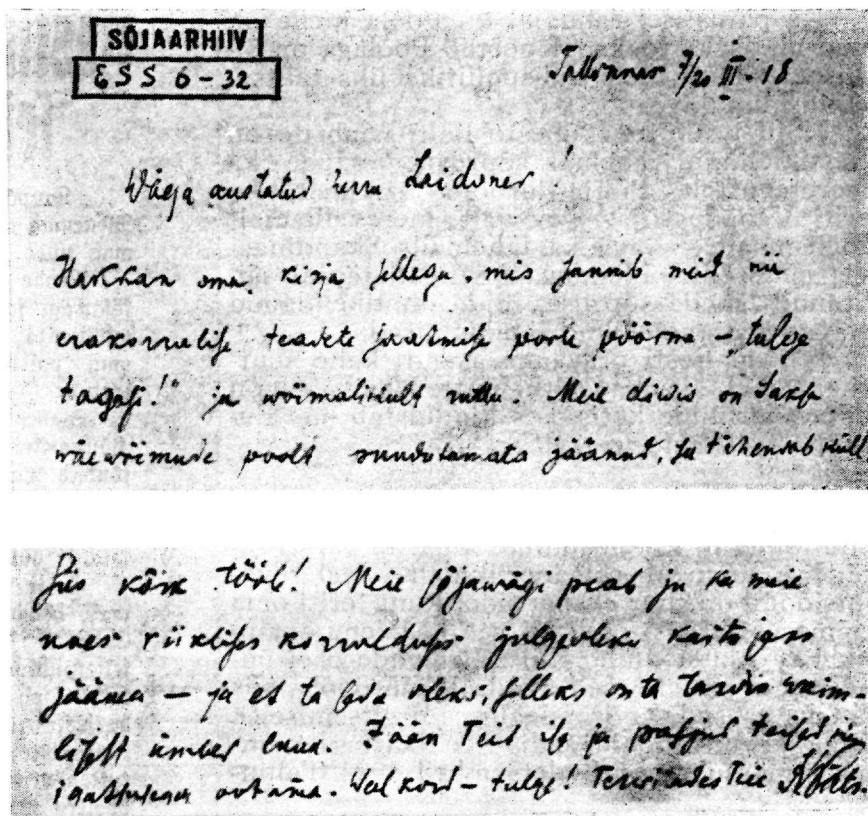 SÕJAARHIIV
ESS 6-32
Tallinnas 7/20 III-18
Wäga austatud herra Laidoner!
Hakkan oma kirja sellega, mis sunnib meid nii
erakorralise teadete saatmise poole pöörma – „tulge
tagasi!" ja wõimalikult ruttu. Meie diwis on Saksa
wäewõimude poolt muudatamata jäänud, see tähendab küll
Siis kõik tööle! Meie sõjawägi peab ju ka meie
uues riiklises korralduses julgeoleku kaitsjaks
jääma – ja et ta seda oleks, selleks on ta tarwis waim-
liselt ümber luua. Jään Teid ise ja paljud teised
igatsusega ootama. Weel kord – tulge! Terwitades Teie K Päts.